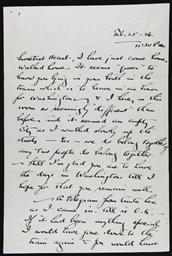 Feb. 25-26.
11:30 P.M.
Sweetest Heart, I have just come home,
walked home. It seems "queer" to
know you lying in your berth in the
train which is to leave in an hour
for Washington, & I here in this
room so seemingly different than
before, and it seemed an empty
city as I walked slowly up the
streets — Yes — we do belong together if
any two people do belong together
— Still I'm glad you are to have
the days in Washington and I
hope for that you remain well.
A Telegram from
as I came in. All is O.K.
If it had been anything special
I would have gone down to the
train again & you would have